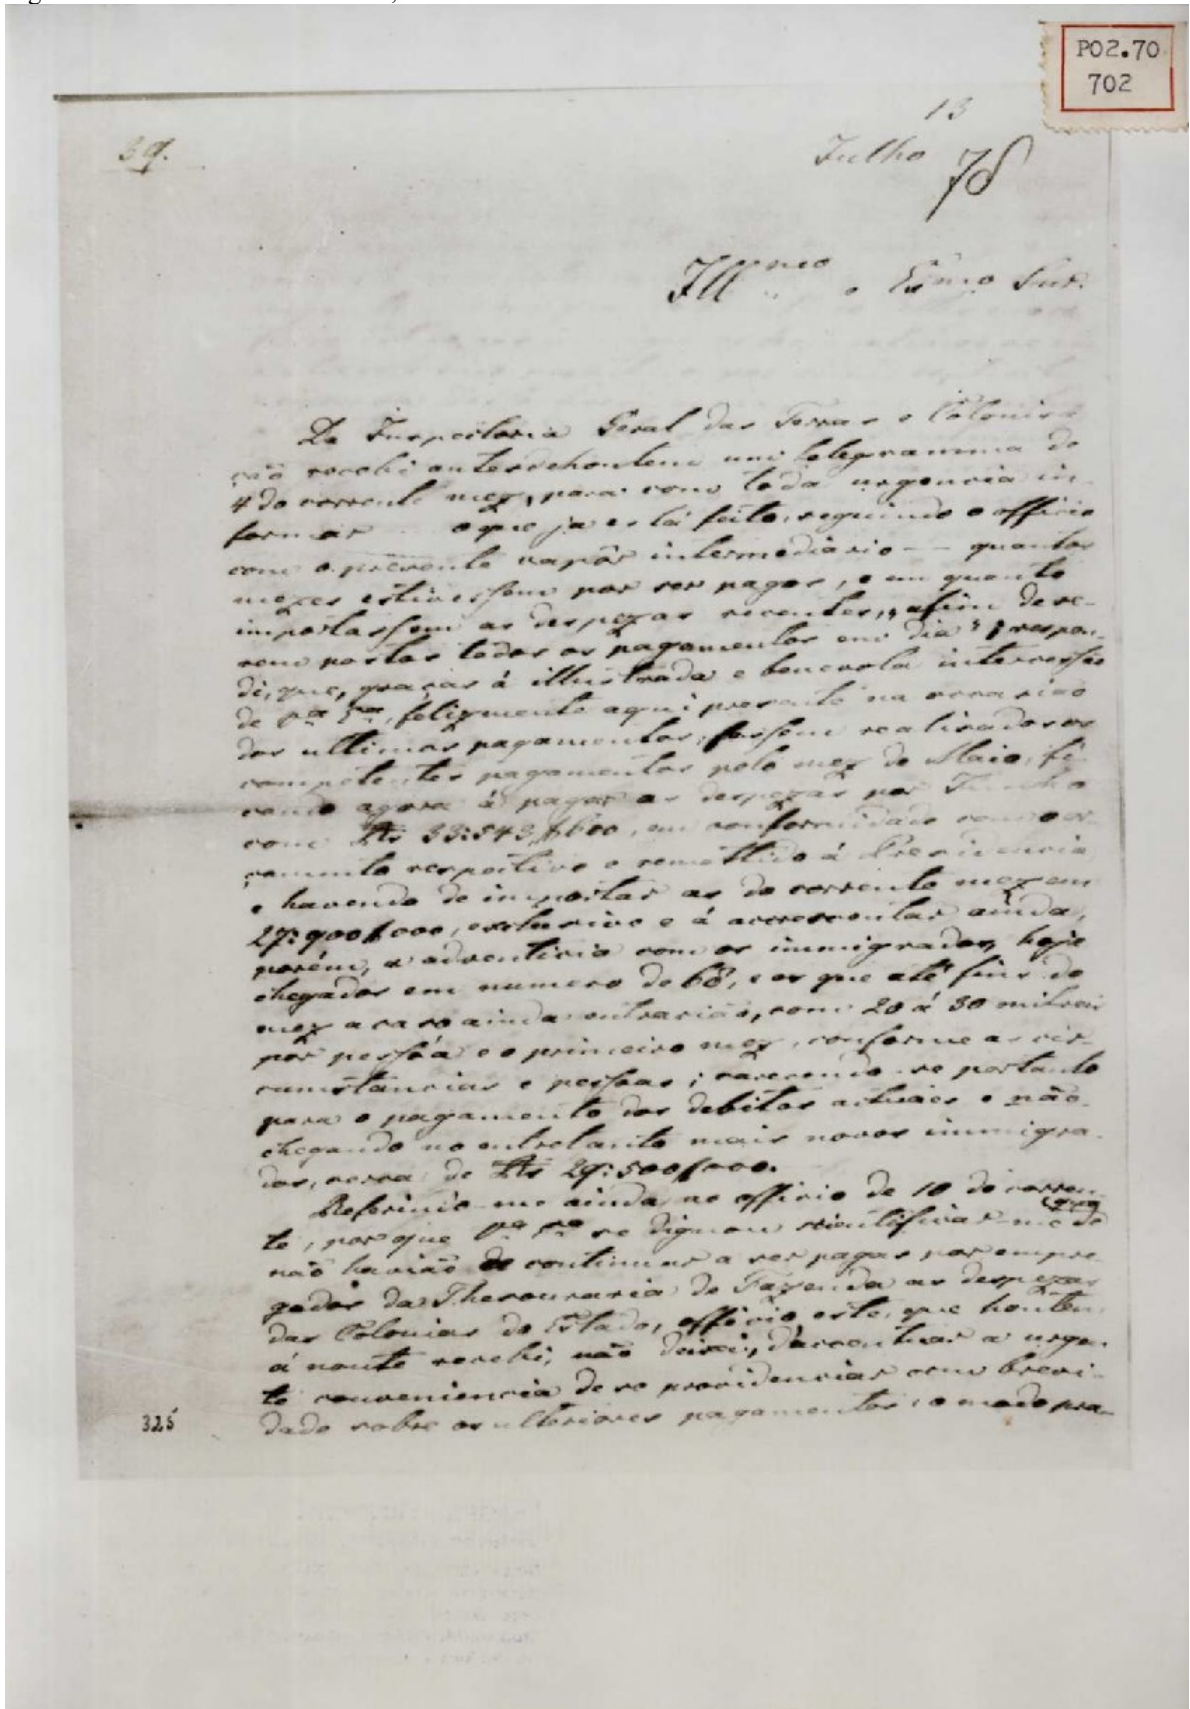 PO2.70
702
13
Julho
78
39.
Illmo e Exmo Snr.
Da Inspectoria Geral das Terras e Colonisa
ção recebi antesdehontem um telegramma de
4 do corrente mez, para com toda urgencia in-
formar o que ja está feito, seguindo o officio
com o presente vapôr intermediario — quantos
mezes estivessem por ser pagos, e em quanto
importassem as despezas recentes, "afim de se-
rem postos todos os pagamentos em dia"; respon-
di, que, graças á illustrada e benevola intercessão
de Va Sa, felizmente aqui presente na occasião
dos ultimos pagamentos, fossem realisados os
competentes pagamentos pelo mez de Maio, fi-
cando agora á pagar as despezas por Junho
com Rs 33:543$600, em conformidade com o or-
çamento respectivo e remettido á Presidencia
e havendo de importar as do corrente mez em
27:900$000, exclusivo e á accrescentar ainda,
porém, a adventicia com os immigrados, hoje
chegados em numero de 68, e os que até fins do
mez acaso ainda entrarião, com 20 á 30 milreis
por pessôa e o primeiro mez, conforme as cir-
cumstancias e pessoas; carecendo-se portanto
para o pagamento dos debitos actuaes e não
chegando no entretanto mais novos immigra-
dos, cerca de Rs 29:500$000.
Referindo-me ainda ao officio de 10 do corren-
te, por que Va Sa se dignou scientificar-me de que
não havião de continuar a ser pagas por empre-
gados da Thesouraria de Fazenda as despezas
das Colonias do Estado, officio este, que hontem
á noute recebi, não deixei, d'accentuar a urgen-
te conveniencia de se providenciar com brevi-
dade sobre os ulteriores pagamentos, o modo pra-
325